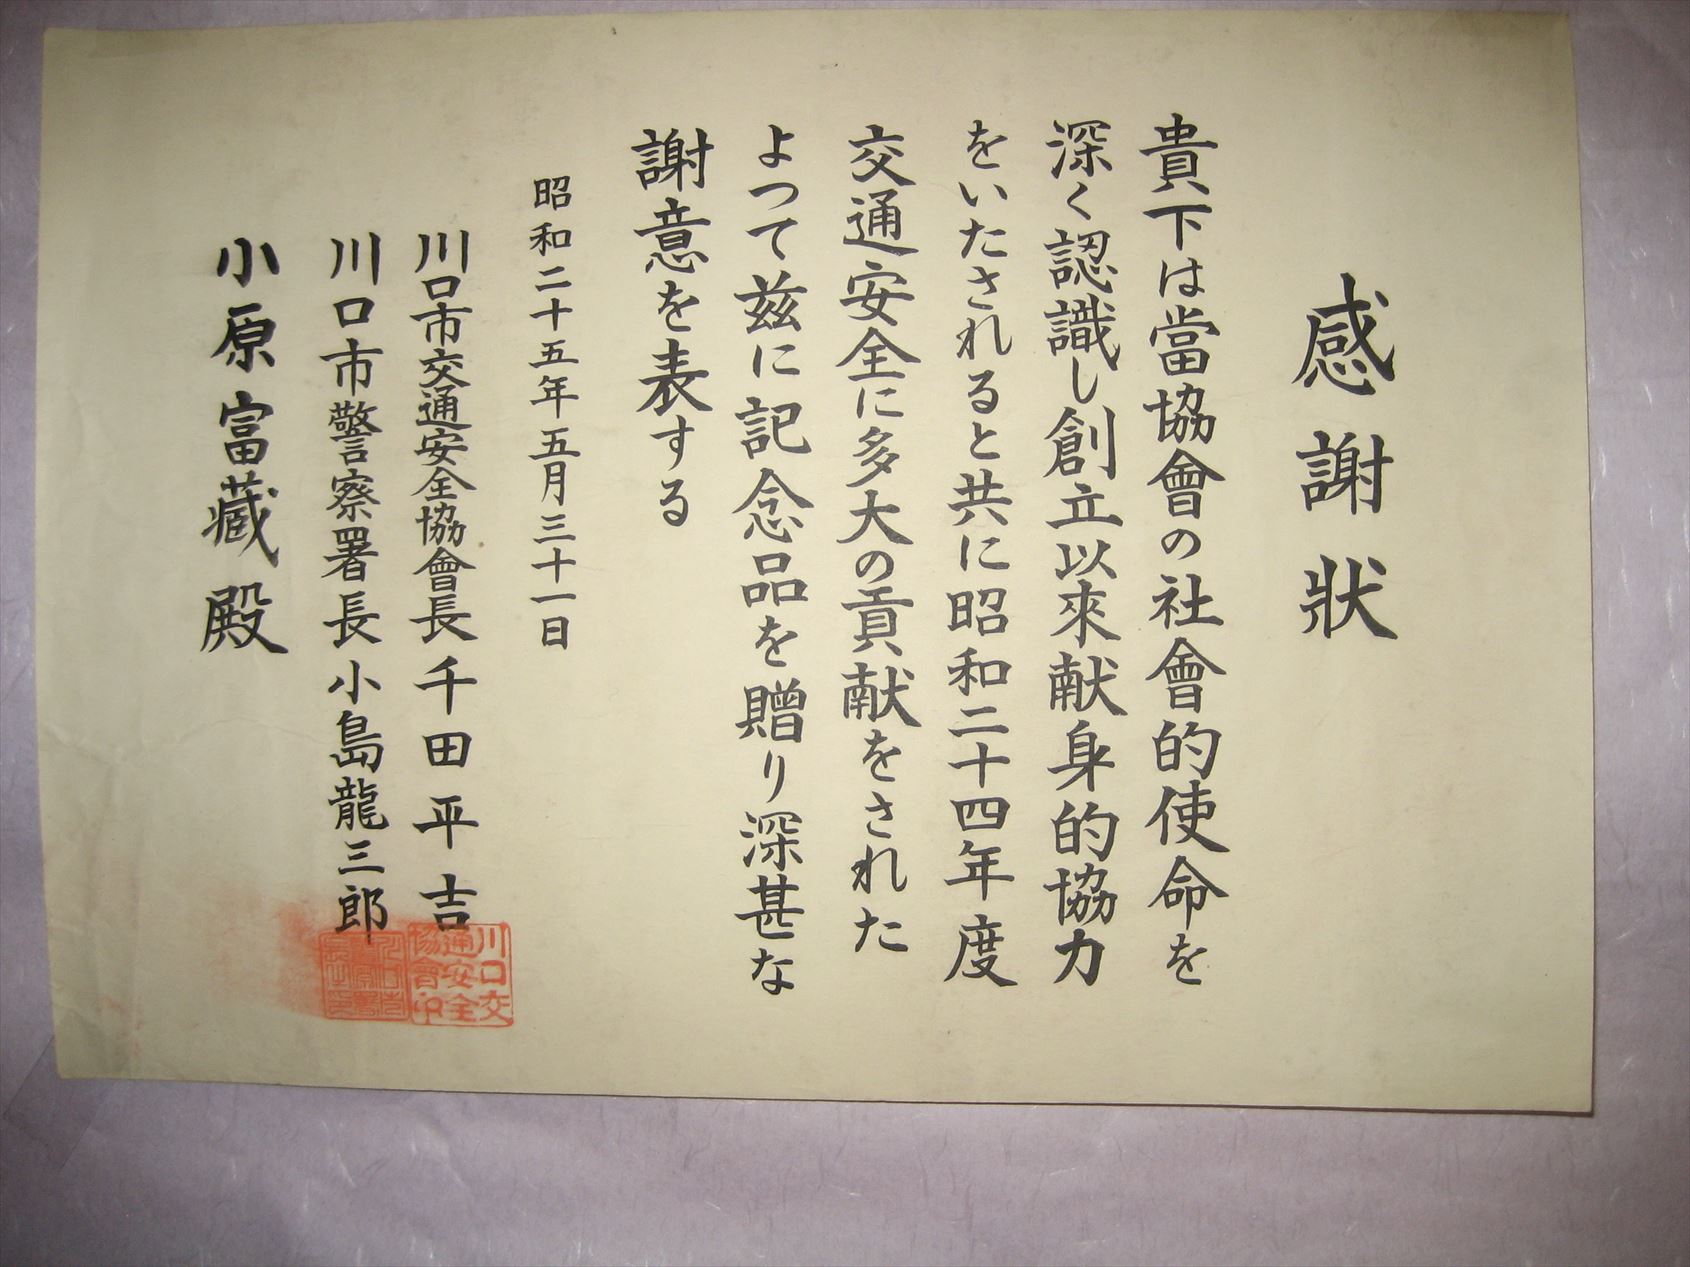 感謝狀
貴下は當協會の社會的使命を
深く認識し創立以來献身的協力
をいたされると共に昭和二十四年度
交通安全に多大の貢献をされた
よつて茲に記念品を贈り深甚な
謝意を表する
昭和二十五年五月三十一日
川口市交通安全協會長千田平吉
川口市警察署長小島龍三郎
小原富藏殿
川口交
通安全
協會印